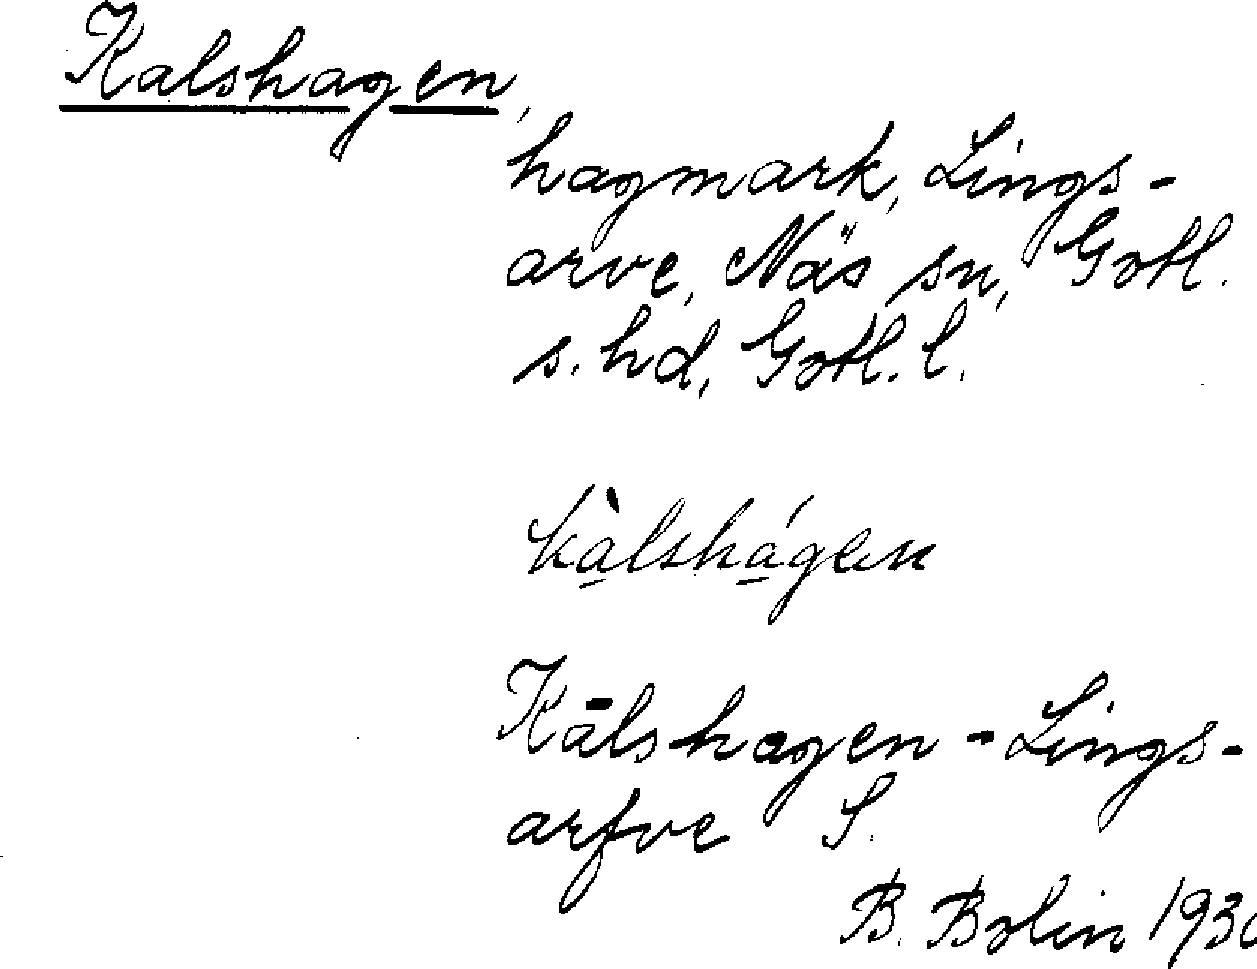 Kalshagen,
hagmark, Lings-
arve, Näs sn, Gotl.
s. hd, Gotl. l.
kàlshágen
Kālshagen - Lings-
arfve S.
B. Bolin